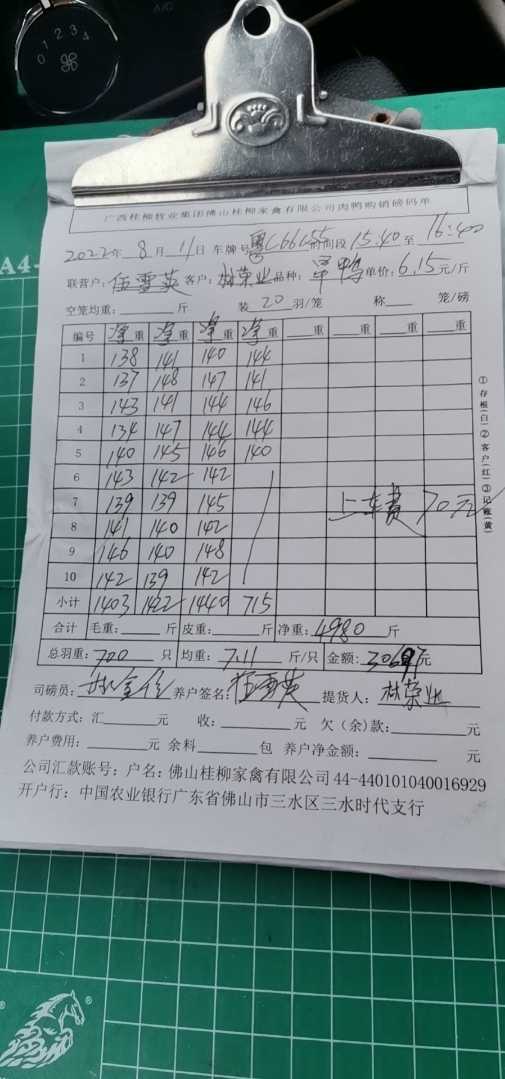 0 1 2 3 4
A/C
A4
广西桂柳牧业集团佛山桂柳家禽有限公司肉鸭购销磅码单
2022年 8月 11日 车牌号 粤C66C55 时间段 15:40 至 16:40
联营户: 伍雪英 客户: 林荣业 品种: 单鸭 单价: 6.15元/斤
空笼均重: 斤 装 20 羽/笼 称 笼/磅
编号 净重 净重 净重 净重 重 重 重 重
1 138 141 140 144
2 137 148 147 141
3 143 141 144 146
4 134 147 144 144
5 140 145 146 140
6 143 142 142
7 139 139 145 上车费70元
8 141 140 142
9 146 140 148
10 142 139 142
小计 1403 1422 1440 715
合计 毛重: 斤 皮重: 斤 净重: 4980 斤
总羽重: 700 只 均重: 7.11 斤/只 金额: 30697元
司磅员: 养户签名: 伍雪英 提货人: 林荣业
付款方式: 汇 元 收: 元 欠(余)款: 元
养户费用: 元 余料 包 养户净金额: 元
公司汇款账号: 户名: 佛山桂柳家禽有限公司 44-440101040016929
开户行: 中国农业银行广东省佛山市三水区三水时代支行
①存根(白)②客户(红)③记账(黄)